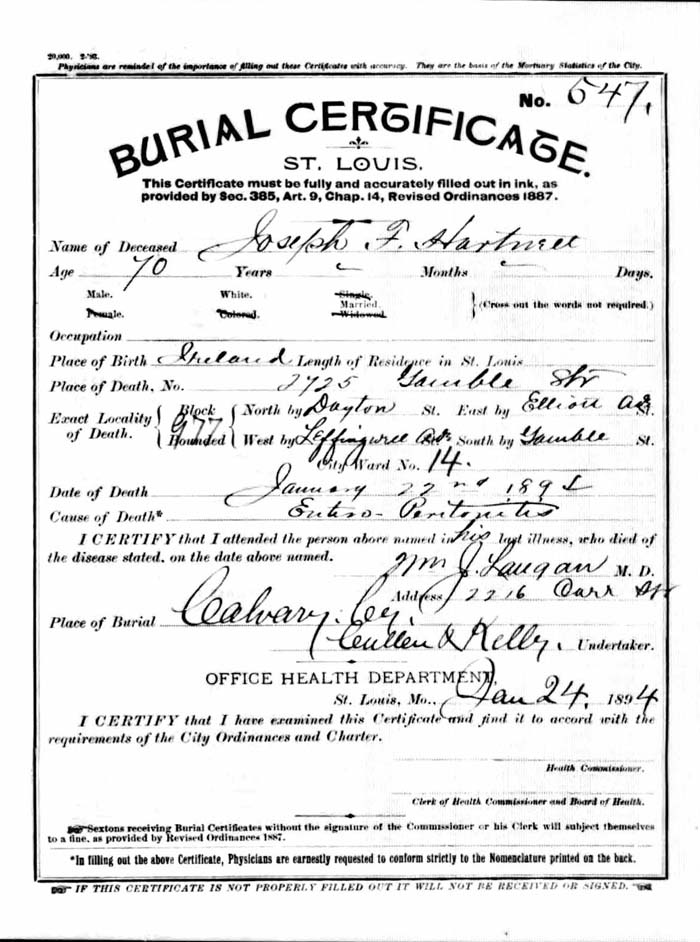 20,000. 2-'93.
Physicians are remindel of the importance of filling out these Certificates with accuracy. They are the basis of the Mortuary Statistics of the City.
No. 547.
BURIAL CERTIFICATE.
ST. LOUIS.
This Certificate must be fully and accurately filled out in ink, as
provided by Sec. 385, Art. 9, Chap. 14, Revised Ordinances 1887.
Name of Deceased Joseph F. Hartwell
Age 70 Years Months Days.
Male. White. Single. Married. (Cross out the words not required.)
Female. Colored. Widowed.
Occupation
Place of Birth Ireland Length of Residence in St. Louis
Place of Death, No. 2725 Gamble Str
Exact Locality of Death. Block 977 Bounded North by Dayton St. East by Elliott Av St.
West by Leffingwell Av St. South by Gamble St.
City Ward No. 14.
Date of Death January 22nd 1894
Cause of Death* Entero-Peritonitis
I CERTIFY that I attended the person above named in his last illness, who died of
the disease stated, on the date above named.
Wm J. Langan M. D.
Address 2216 Carr Str
Place of Burial Calvary Cy.
Cullen & Kelly. Undertaker.
OFFICE HEALTH DEPARTMENT,
St. Louis, Mo., Jan 24. 1894
I CERTIFY that I have examined this Certificate and find it to accord with the
requirements of the City Ordinances and Charter.
Health Commissioner.
Clerk of Health Commissioner and Board of Health.
Sextons receiving Burial Certificates without the signature of the Commissioner or his Clerk will subject themselves
to a fine, as provided by Revised Ordinances 1887.
*In filling out the above Certificate, Physicians are earnestly requested to conform strictly to the Nomenclature printed on the back.
IF THIS CERTIFICATE IS NOT PROPERLY FILLED OUT IT WILL NOT BE RECEIVED OR SIGNED.